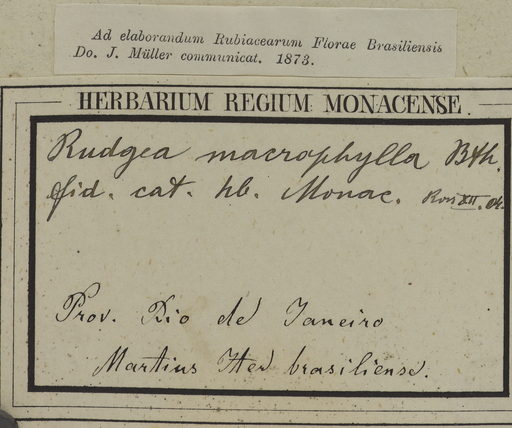 Ad elaborandum Rubiacearum Florae Brasiliensis
Do. J. Müller communicat. 1873.
HERBARIUM REGIUM MONACENSE.
Rudgea macrophylla Bth.
fid. cat. hb. Monac. Ross XII. 04.
Prov. Rio de Janeiro
Martius Iter brasiliense.